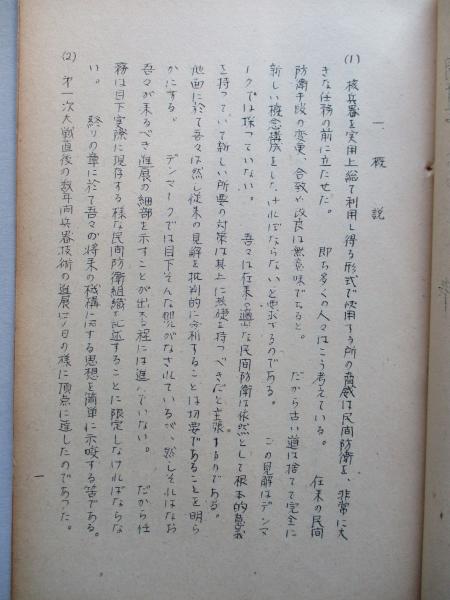 一、概説
(1) 核兵器を実用上総て利用し得る形式で使用する所の脅威は民間防衛を、非常に大
きな任務の前に立たせた。 即ち多くの人々はこう考えている。 在来の民間
防衛手段の変更、合致や改良は無意味であると。 だから古い道は捨てて完全に
新しい概念構成をしなければならないと要求するのである。 この見解はデンマ
ークでは採っていない。 吾々は在来の適な民間防衛は依然として根本的意義
を持っていて新しい所要の対策は其上に基礎を持つべきだと主張するのである。
他面に於て吾々は然し従来の見解を批判的に分析することは切要であることを明ら
かにする。 デンマークでは目下そんな がなされているが、然しそれはなお
吾々が来るべき進展の細部を示すことが出来る程には進んでいない。 だから任
務は目下実際に現存する様な民間防衛組織を記述することに限定しなければならな
い。 終りの章に於て吾々の将来の機構に関する思想を簡単に示唆する筈である。
(2) 第一次大戦直後の数年間兵器技術の進展は 日の様に頂点に達したのであった。
一